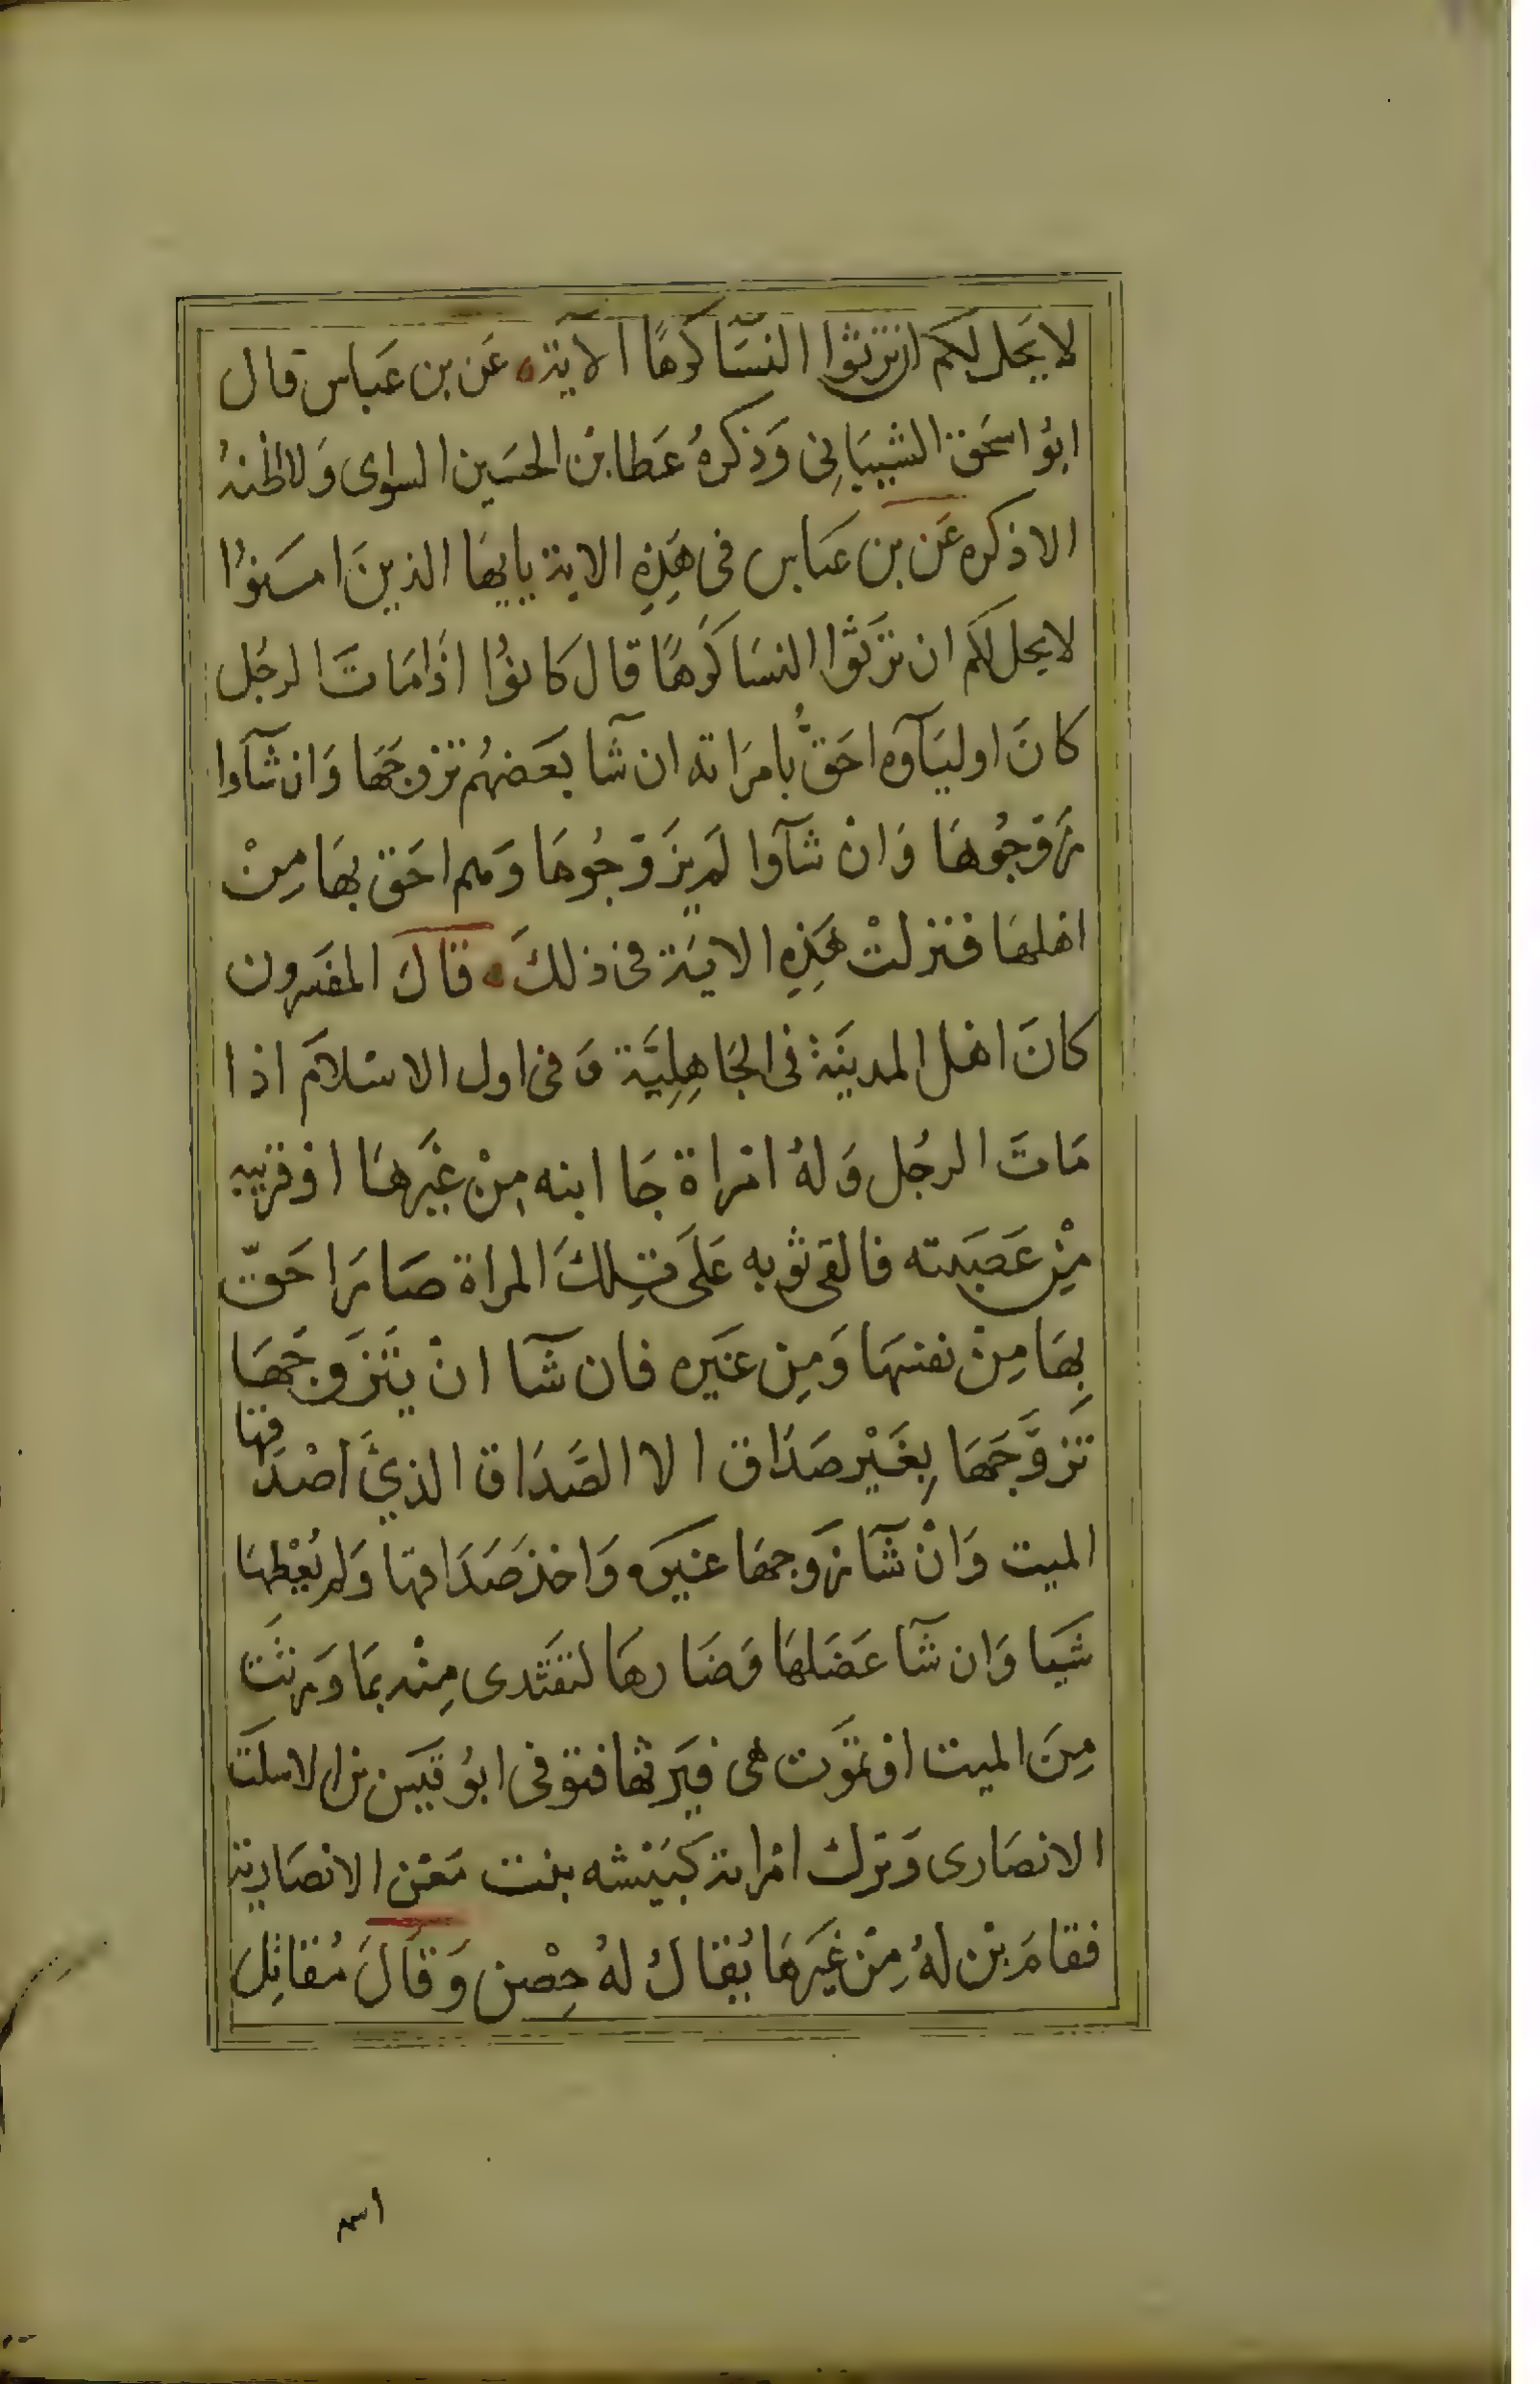 لا يَحل لكم ان ترثوا النسَّا كرهًا الآية ه عَن بن عَباس قال
ابوُ اسحَق الشيبَانِى وَذكرهُ عَطا بْن الحسَين السواى وَلا اظنهُ
الا ذكره عَن بن عبَاس فى هَذِهِ الاية يايهَا الذينَ امَنوُا
لا يحل لكم ان ترَثوا النسَا كَرهًا قال كانوُا اذَا مَاتَ الرجُل
كانَ اوليَآوه احَقُّ بامرَاته ان شآ بعَضهُم تزوجَهَا وَان شآوا
زَوَّجُوهَا وَانْ شآوا لم يزَوّجُوهَا وَهم احَق بهَا مِنْ
اهلهَا فنزلتْ هَذِهِ الاية فى ذلكَ ه قالَ المفسرون
كانَ اهْل المدينَة فى الجَاهِلِيَّة وَفى اول الاسْلامَ اذا
مَاتَ الرجُل وَلهُ امْراة جَا ابنه مِنْ غَيَرهَا اوْ قريبه
مْن عَصَبته فالقى ثوبه عَلَى تِلكَ المراة صَارَ احَقّ
بِهَا مِنْ نفسهَا وَمِن غيَره فان شآ انْ يتَزَوجَهَا
تَزوَّجَهَا بِغَيْر صَدَاق الا الصَّدَاق الذيَّ اصْدَقها
الميت وَانْ شآ زَوجهَا غيَره وَاخذ صَدَاقها وَلم يُعْطهَا
شَيا وَان شآ عَضَلهَا وَضَارهَا لتفتَدى مِنْه بمَا وَرثَت
مِنَ الميت اوْ تموَت هى فيَرثها فتوفى ابوُ قيَس بن الاسلَت
الانصَارى وَترك امْراته كبَيْشه بنت مَعْن الانصَارية
فقامَ بْن لهُ مِنْ غيَرهَا يُقالُ لهُ حِصْن وَقَالَ مُقاتِلَ